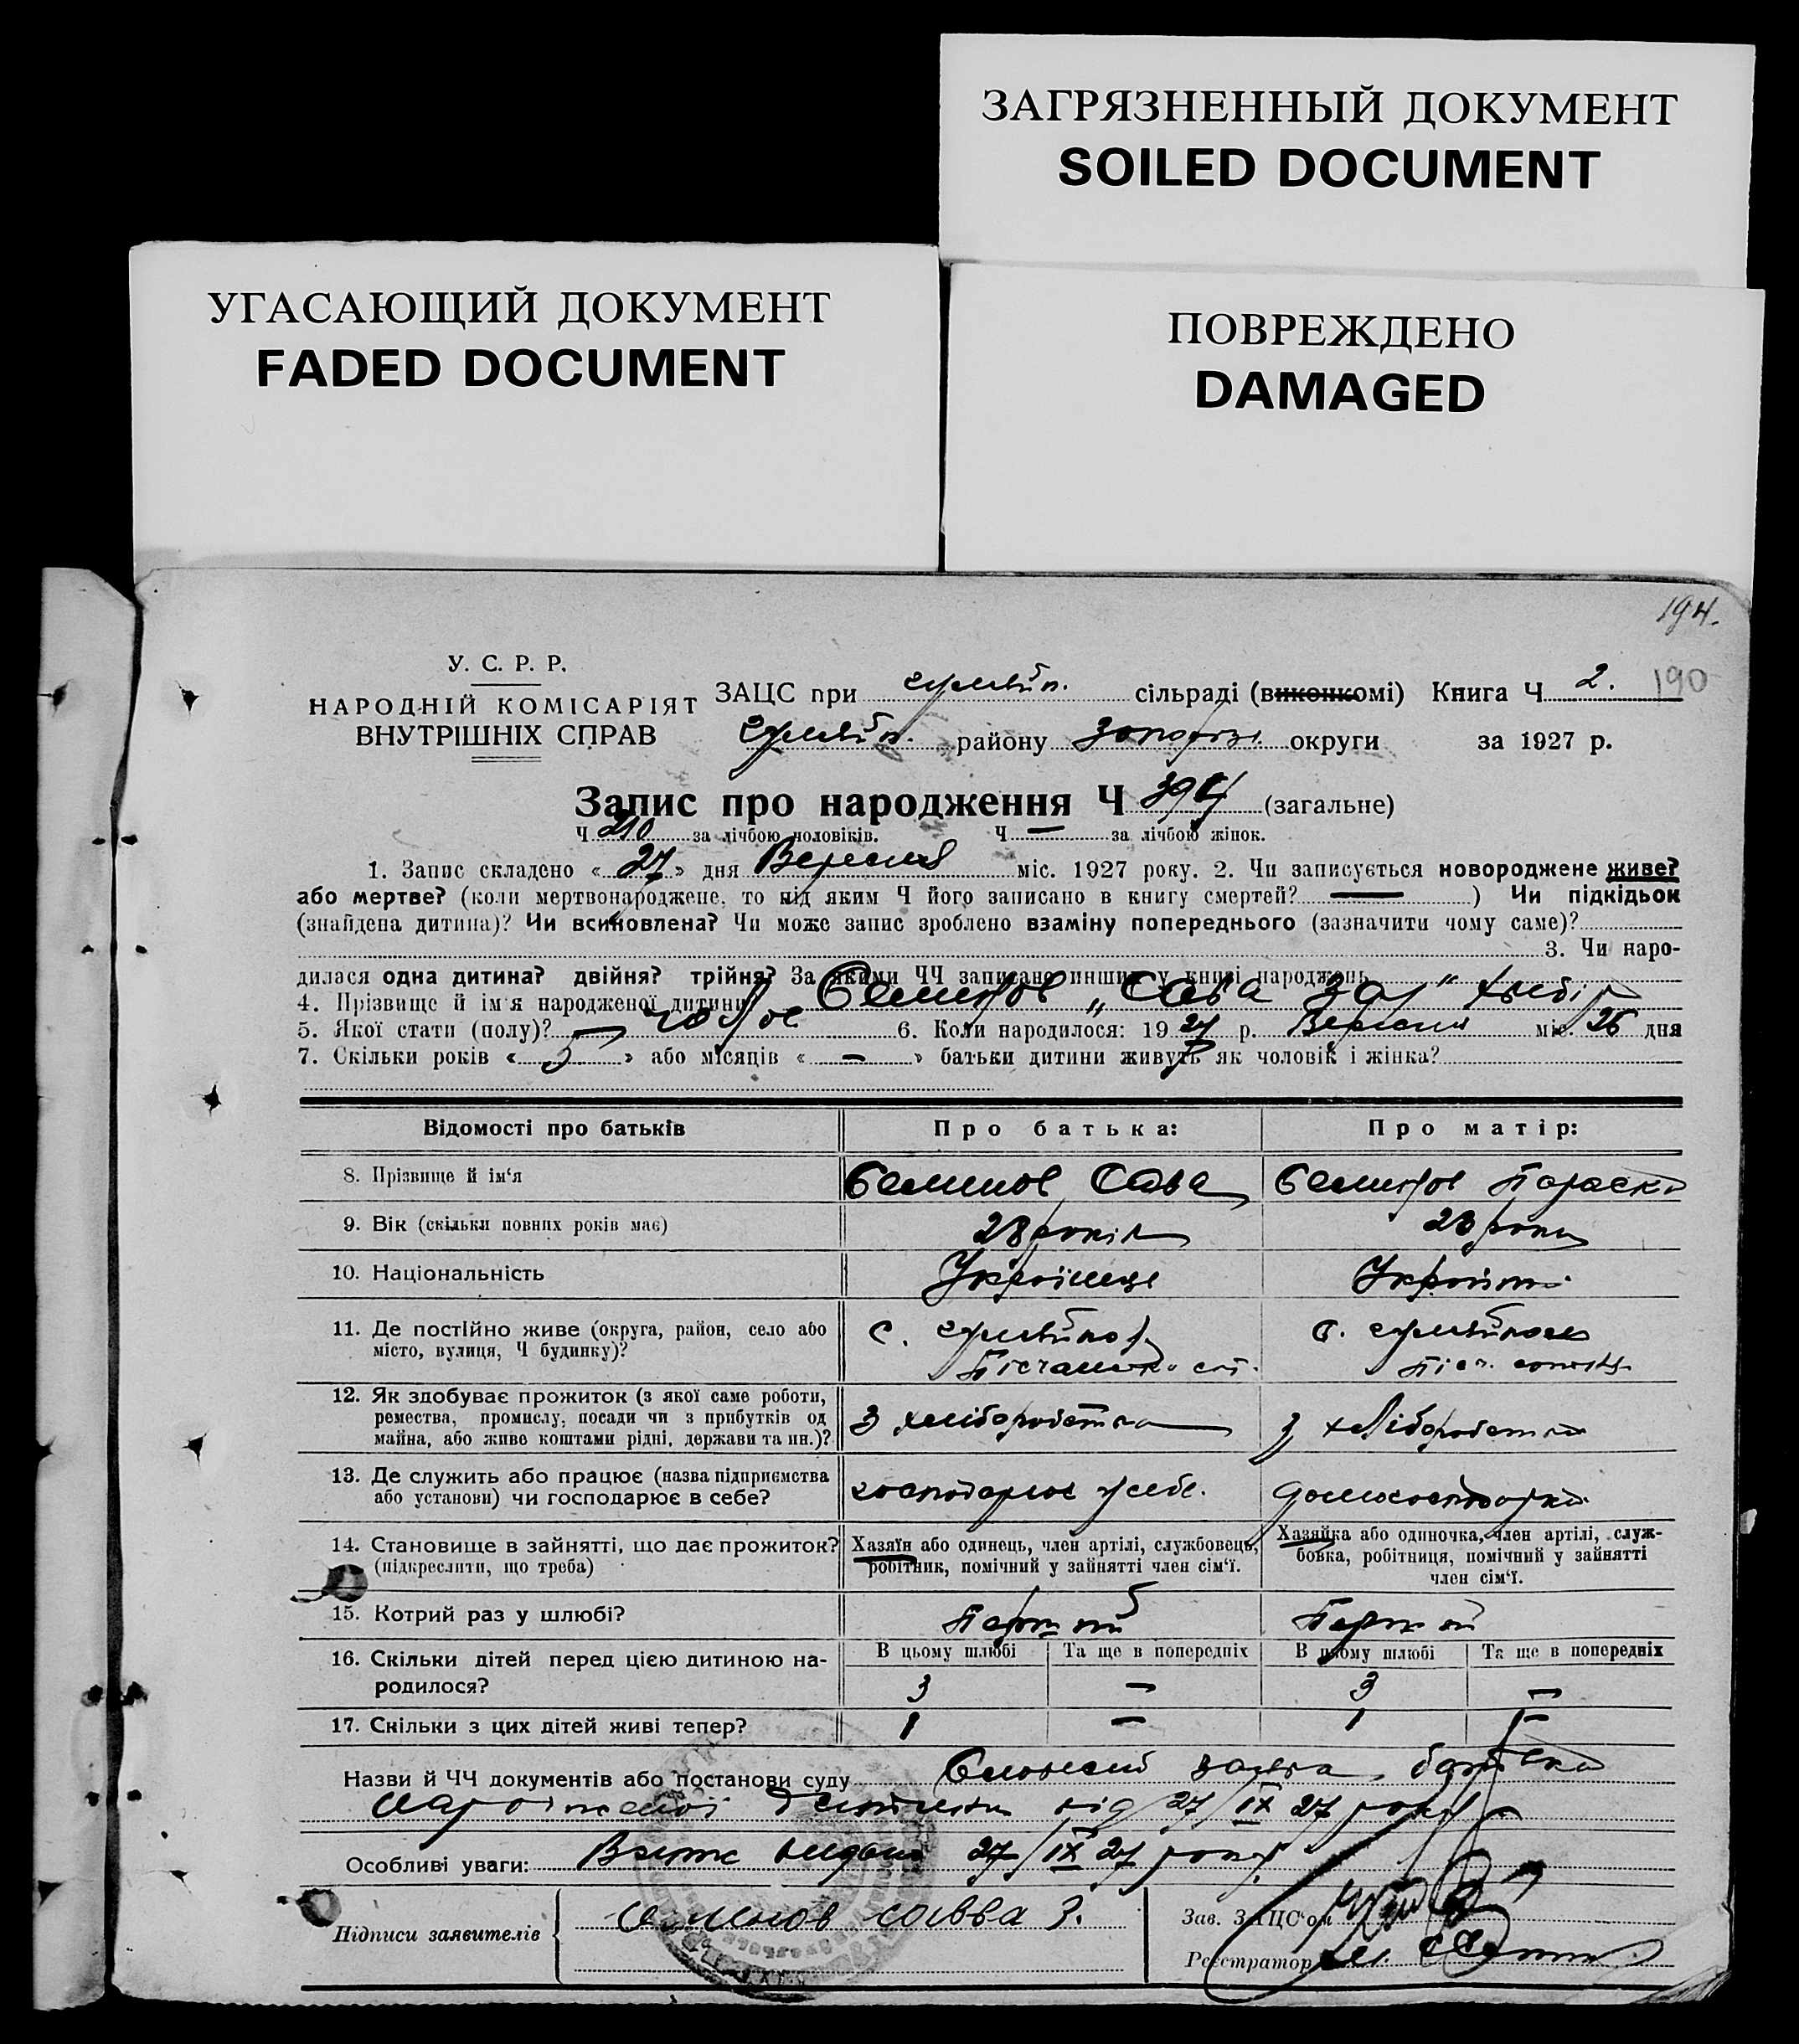 ЗАГРЯЗНЕННЫЙ ДОКУМЕНТ
SOILED DOCUMENT
УГАСАЮЩИЙ ДОКУМЕНТ
FADED DOCUMENT
ПОВРЕЖДЕНО
DAMAGED
194.
190
У. С. Р. Р.
НАРОДНІЙ КОМІСАРІЯТ
ВНУТРІШНІХ СПРАВ
ЗАЦС при сільраді (виконкомі) Книга Ч 2.
району округи за 1927 р.
Запис про народження Ч 394 (загальне)
Ч 210 за лічбою чоловіків. Ч — за лічбою жінок.
1. Запис складено « 27 » дня Вересня міс. 1927 року. 2. Чи записується новороджене живе?
або мертве? (коли мертвонароджене, то під яким Ч його записано в книгу смертей? — ) Чи підкідьок
(знайдена дитина)? Чи всиновлена? Чи може запис зроблено взаміну попереднього (зазначити чому саме)?
3. Чи наро-
дилася одна дитина? двійня? трійня? За якими ЧЧ записано инших у книзі народжень
4. Прізвище й ім'я народженої дитини Семенов „Сава
5. Якої стати (полу)? чолов 6. Коли народилося: 1927 р. Вересня міс. 26 дня
7. Скільки років « 5 » або місяців « — » батьки дитини живуть як чоловік і жінка?
Відомості про батьків Про батька: Про матір:
8. Прізвище й ім'я Семенов Сава Семенов Параска
9. Вік (скільки повних років має) 28 років 23 роки
10. Національність Українець Українка
11. Де постійно живе (округа, район, село або
місто, вулиця, Ч будинку)? с. с.
12. Як здобуває прожиток (з якої саме роботи,
ремества, промислу, посади чи з прибутків од
майна, або живе коштами рідні, держави та ин.)? З хліборобства З хліборобства
13. Де служить або працює (назва підприємства
або установи) чи господарює в себе? господарює у себе. домогосподарка
14. Становище в зайнятті, що дає прожиток?
(підкреслити, що треба)
Хазяїн або одинець, член артілі, службовець,
робітник, помічний у зайнятті член сім'ї.
Хазяйка або одиночка, член артілі, служ-
бовка, робітниця, помічний у зайнятті
член сім'ї.
15. Котрий раз у шлюбі? Перший Перший
В цьому шлюбі Та ще в попередніх В цьому шлюбі Та ще в попередніх
16. Скільки дітей перед цією дитиною на-
родилося? 3 — 3 —
17. Скільки з цих дітей живі тепер? 1 — 1 —
Назви й ЧЧ документів або постанови суду Словесна заява батька
народженої дитини від 27/IX 27 року
Особливі уваги: видано 27/IX 27 року
Підписи заявителів Семенов Савва З.
Зав. ЗАЦС'ом
Реєстратор